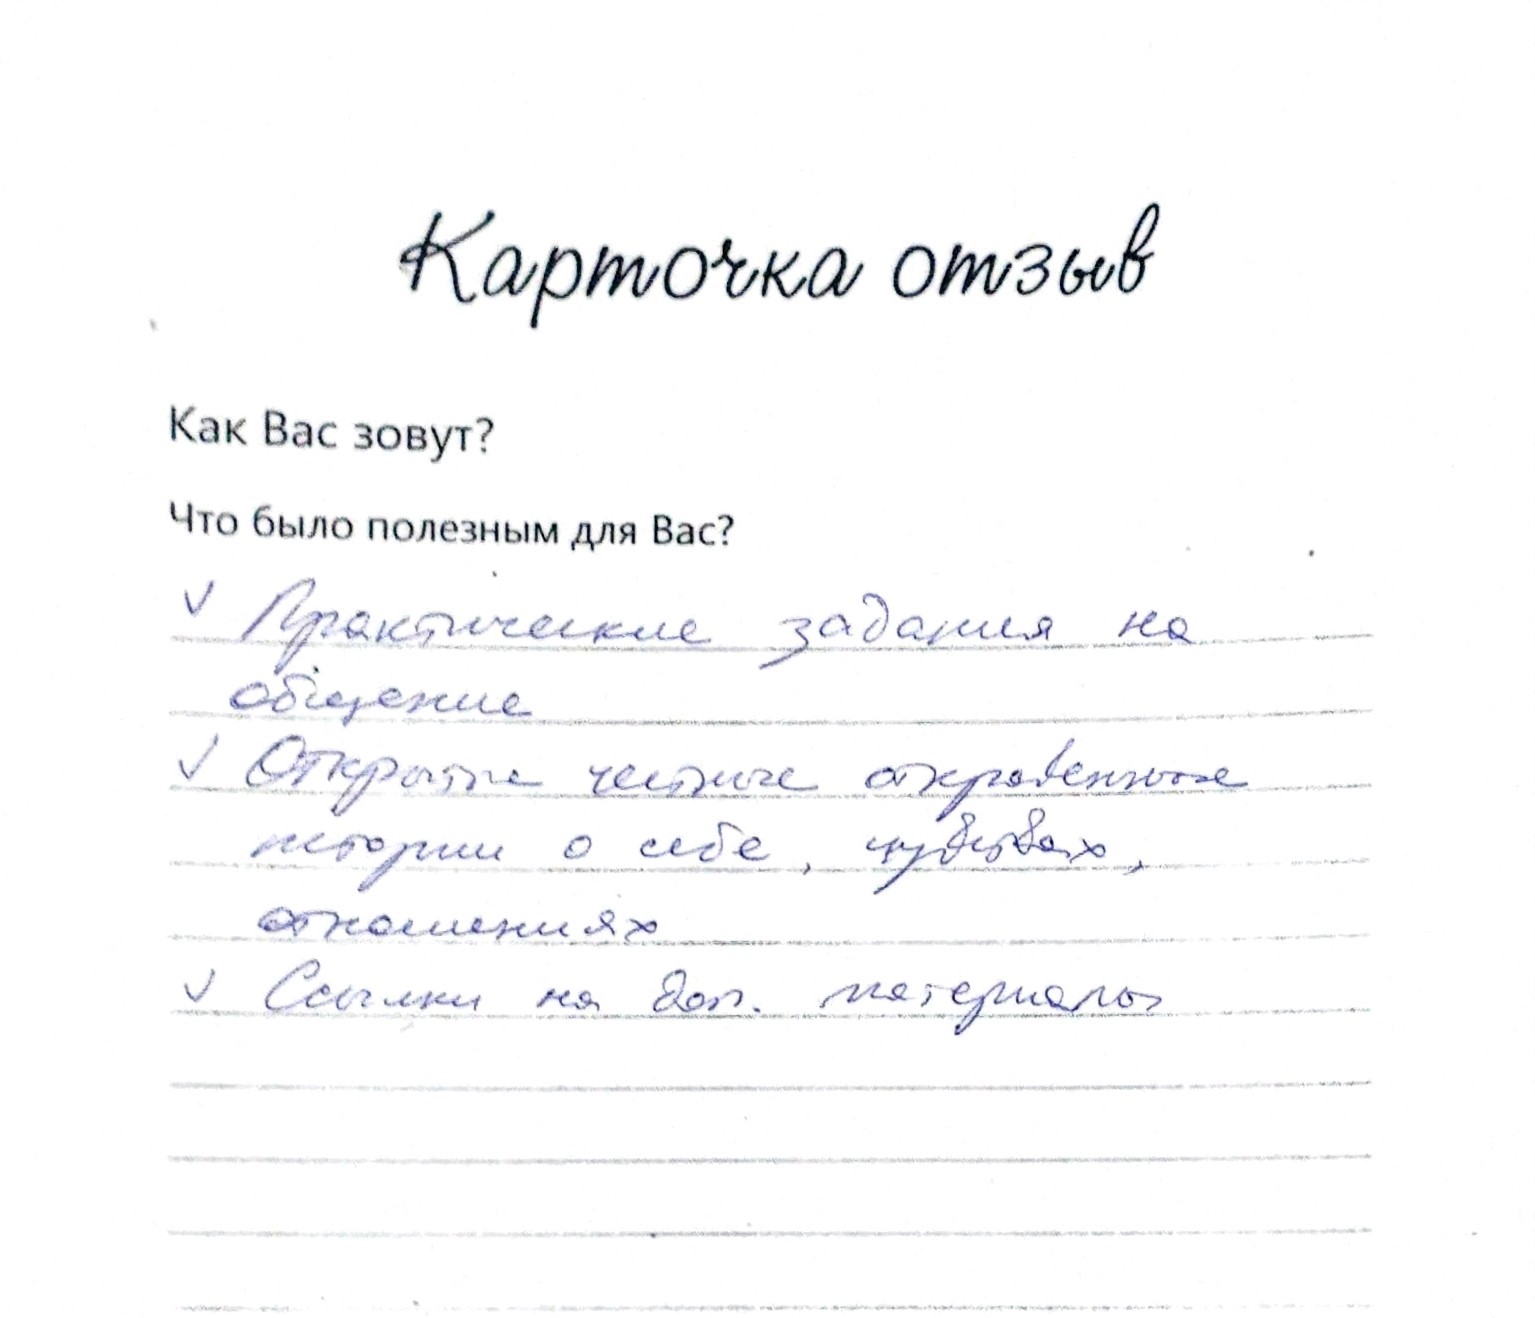 Карточка отзыв
Как Вас зовут?
Что было полезным для Вас?
✓ Практические задания на
общение
✓ Открытые честные откровенные
истории о себе, чувствах,
отношениях
✓ Ссылки на доп. материалы